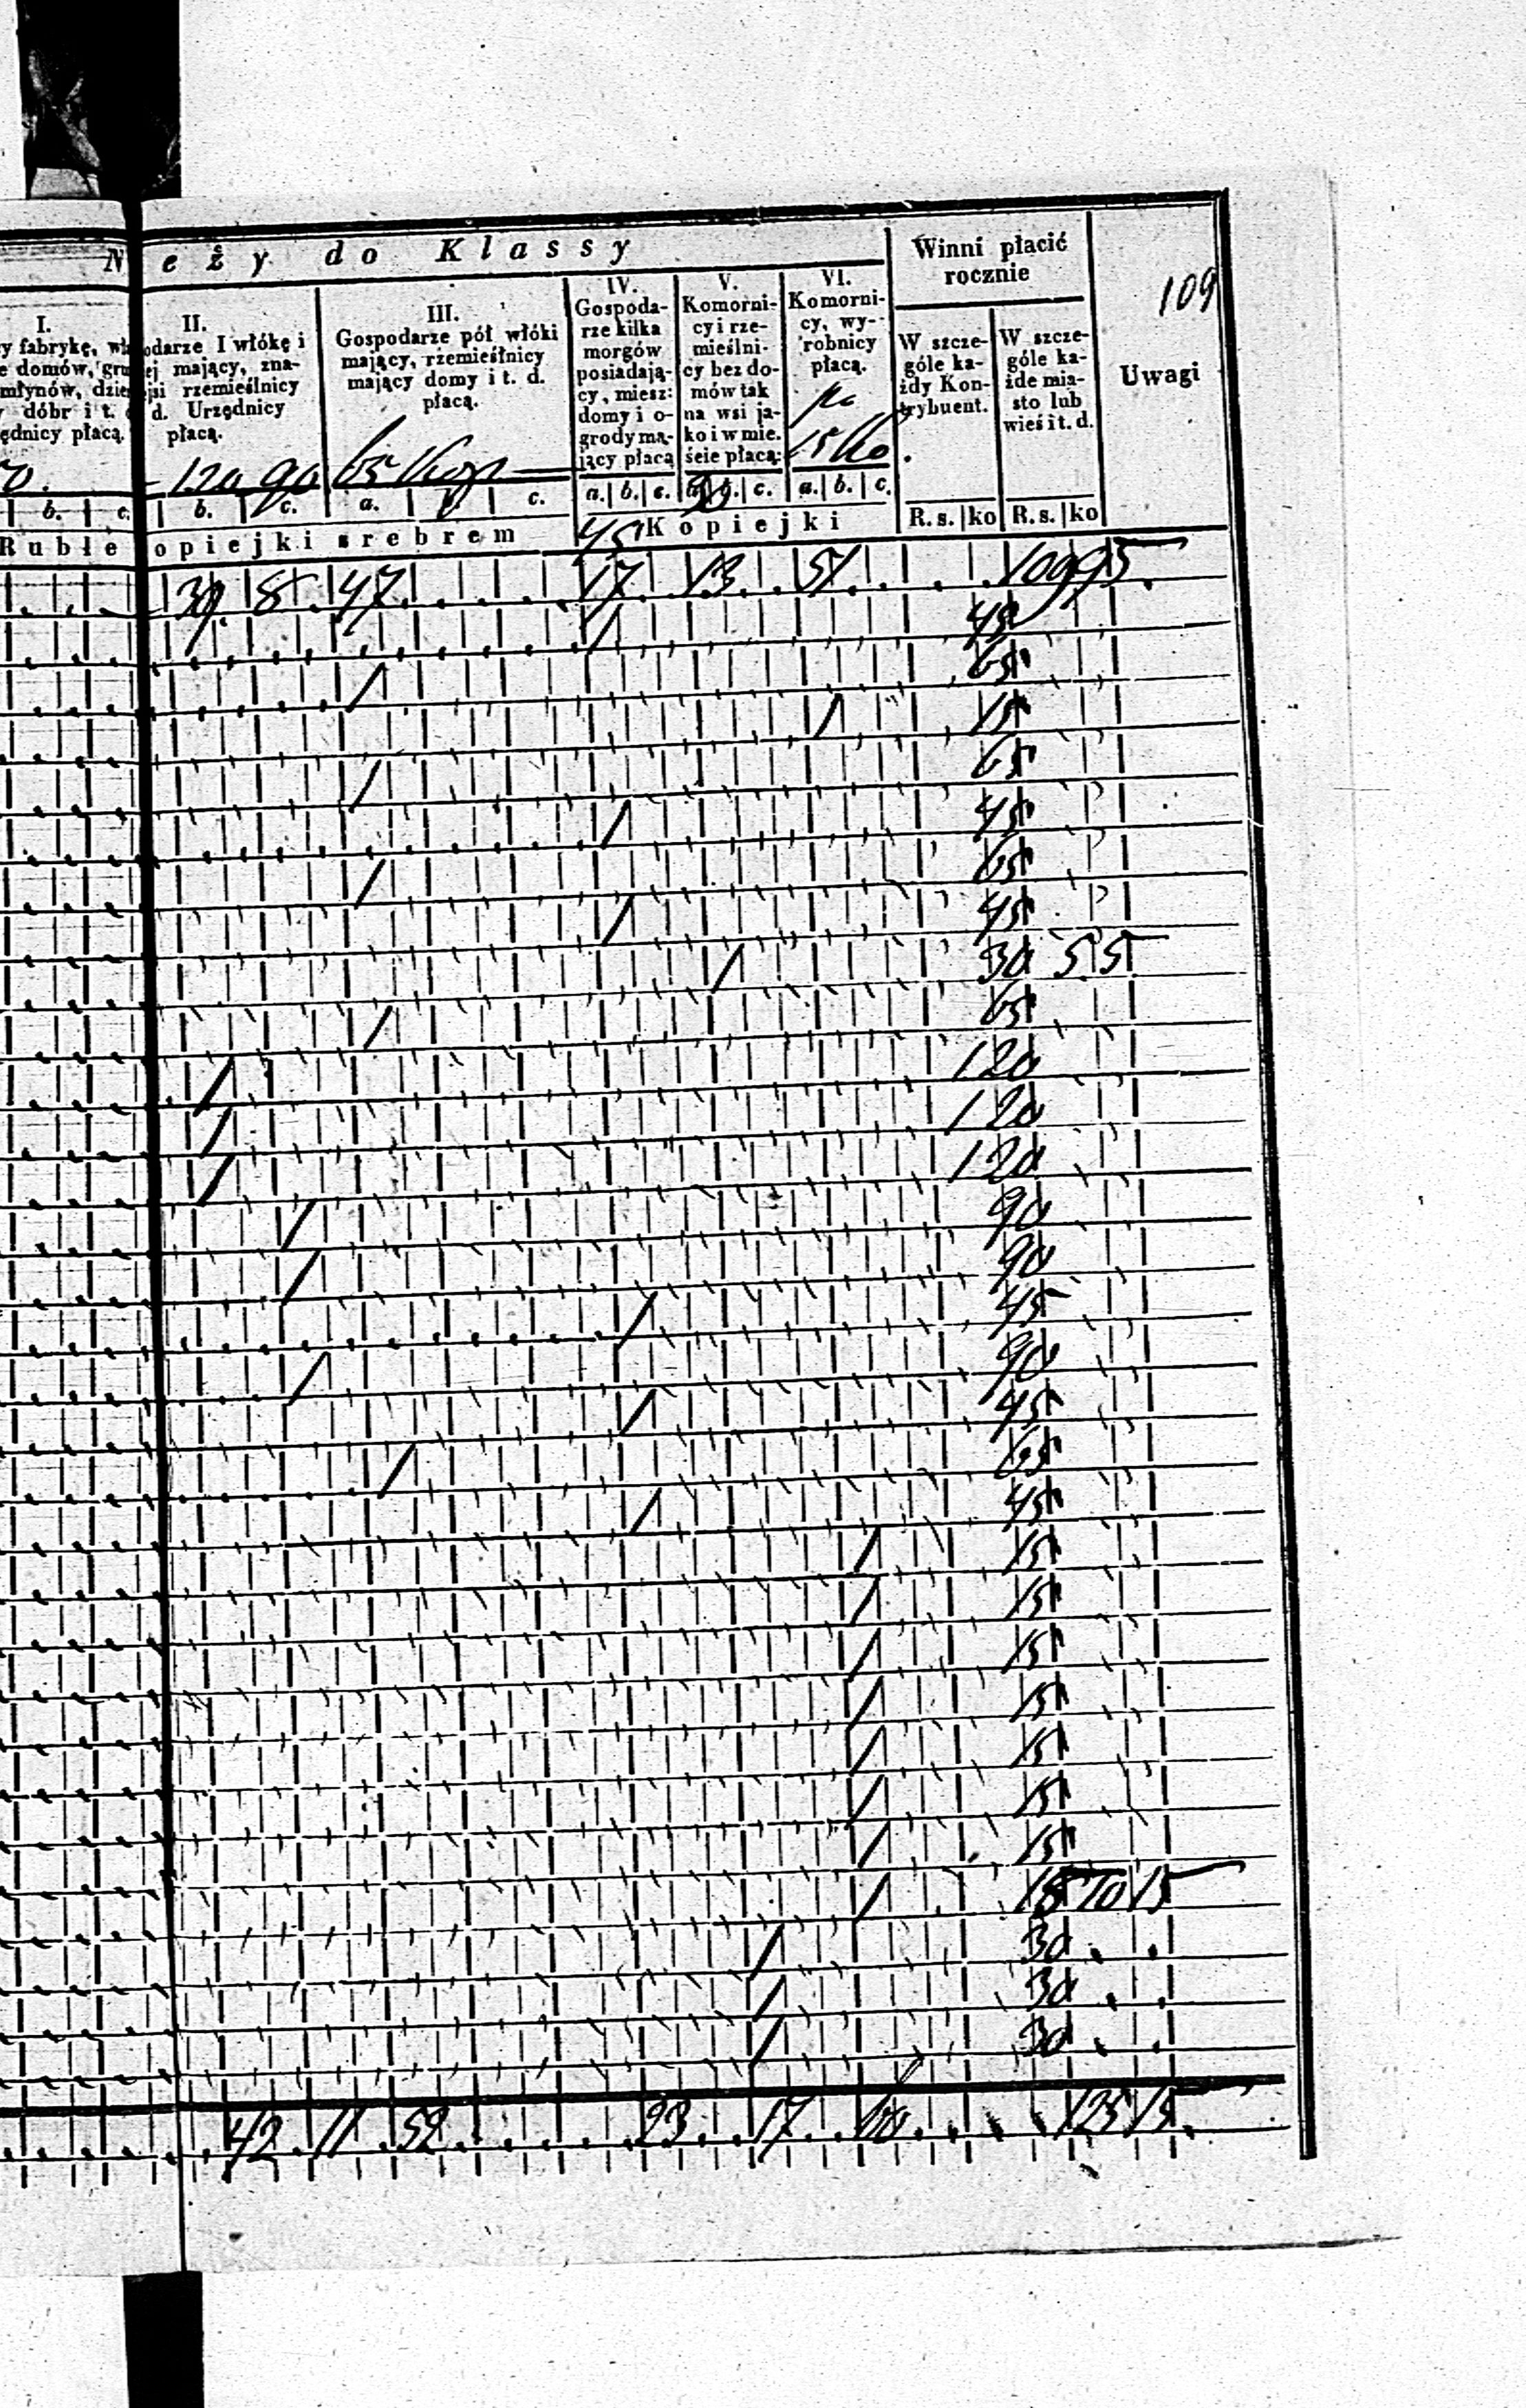 N eży do Klassy
Winni płacić
rocznie
109
I.
y fabrykę, wła
e domów, gru
młynów, dzie
dóbr i t. d
ędnicy płacą.
II.
odarze I włókę i
ej mający, zna-
jsi rzemieślnicy
d. Urzędnicy
płacą.
120 90
III.
Gospodarze pół włóki
mający, rzemieślnicy
mający domy i t. d.
płacą.
65 kop
IV.
Gospoda-
rze kilka
morgów
posiadają-
cy, miesz:
domy i o-
grody ma-
jący płacą
V.
Komorni-
cy i rze-
mieślni-
cy bez do-
mów tak
na wsi ja-
ko i w mie.
ście płacą:
VI.
Komorni-
cy, wy-
robnicy
płacą.
po
15 ko
W szcze-
góle ka-
żdy Kon-
trybuent.
W szcze-
góle ka-
żde mia-
sto lub
wieś i t. d.
Uwagi
b. c. b. c. a. b. c. a. b. c. 30 b. c. a. b. c. R. s. ko R. s. ko
Ruble opiejki srebrem 45 Kopiejki
39 8 47 17 13 51 109 95
/ 45
/ 65
/ 15
/ 65
/ 45
/ 65
/ 45
/ 30 5 5
/ 65
/ 1 20
/ 1 20
/ 1 20
/ 90
/ 90
/ 45
/ 90
/ 45
/ 65
/ 45
/ 15
/ 15
/ 15
/ 15
/ 15
/ 15
/ 15
/ 15 10 15
/ 30
/ 30
/ 30
42 11 52 23 17 60 125 15